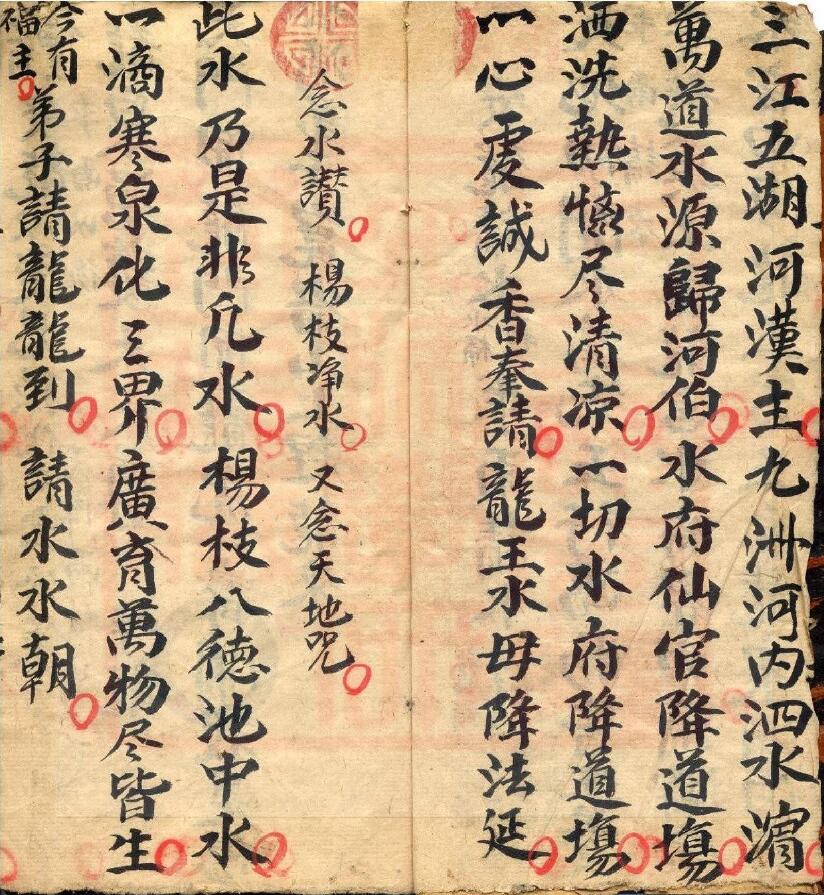 三江五湖河漢主九洲河内泗水濱
萬道水源歸河伯水府仙官降道場
洒洗熱惱尽清凉一切水府降道場
一心虔誠香奉請龍王水母降法延
念水讃 楊枝净水 又念天地咒
此水乃是非凡水 楊枝八德池中水
一滴寒泉化三界廣育萬物尽皆生
今有福主弟子請龍龍到 請水水朝